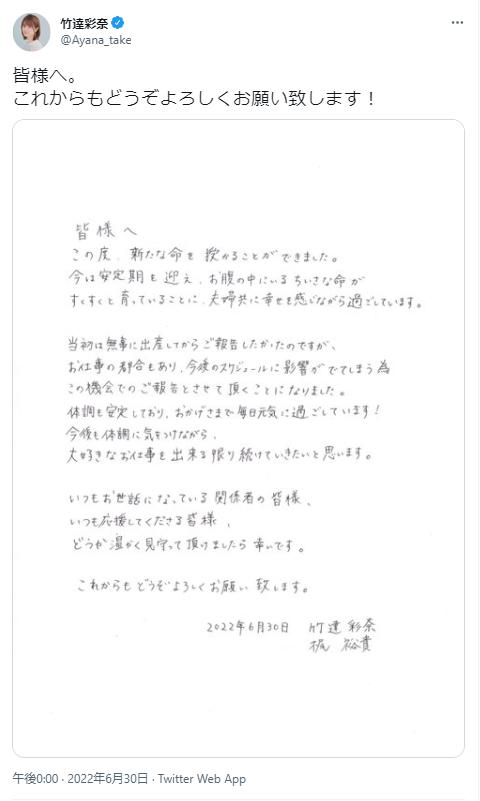 竹達彩奈
@Ayana_take
皆様へ。
これからもどうぞよろしくお願い致します！
皆様へ
この度、新たな命を授かることができました。
今は安定期も迎え、お腹の中にいるちいさな命が
すくすくと育っていることに、夫婦共に幸せを感じながら過ごしています。
当初は無事に出産してからご報告したかったのですが、
お仕事の都合もあり、今後のスケジュールに影響がでてしまう為
この機会でのご報告とさせて頂くことになりました。
体調も安定しており、おかげさまで毎日元気に過ごしています！
今後も体調に気をつけながら、
大好きなお仕事を出来る限り続けていきたいと思います。
いつもお世話になっている関係者の皆様、
いつも応援してくださる皆様、
どうか温かく見守って頂けましたら幸いです。
これからもどうぞよろしくお願い致します。
2022年6月30日 竹達彩奈
梶裕貴
午後0:00 · 2022年6月30日 · Twitter Web App